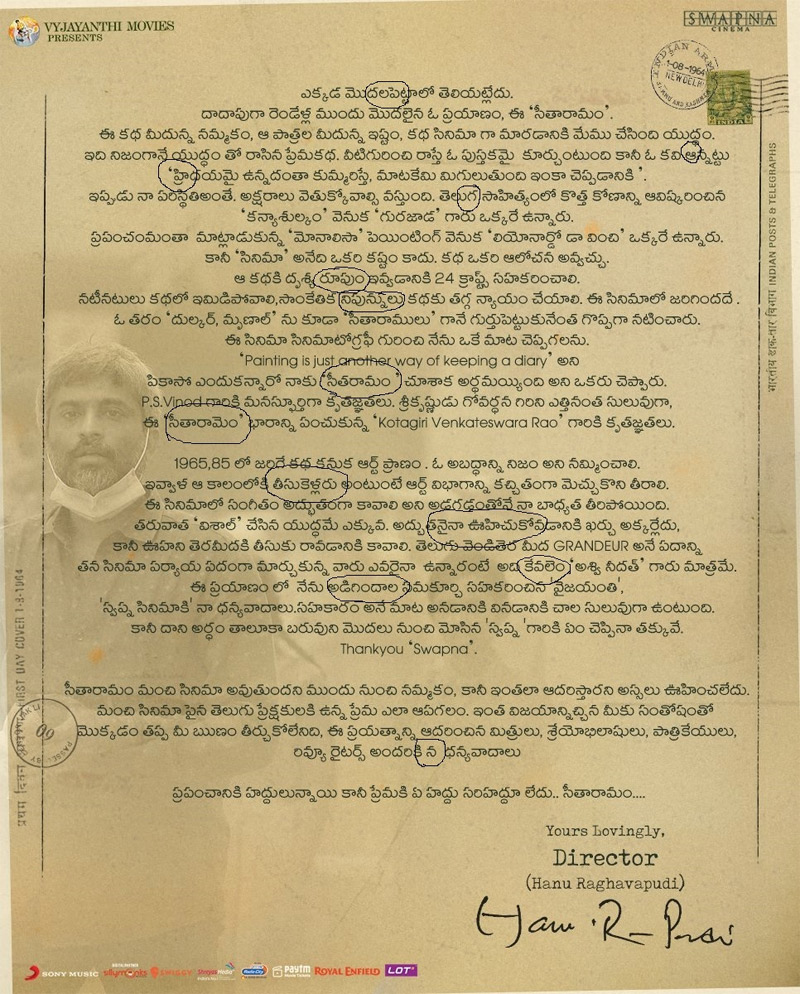 VYJAYANTHI MOVIES
PRESENTS
SWAPNA
CINEMA
INDIAN ARMY
1-08-1964
NEW DELHI
INDIA
ఎక్కడ మొదలపెట్టాలో తెలియట్లేదు.
దాదాపుగా రెండేళ్ల ముందు మొదలైన ఓ ప్రయాణం, ఈ 'సీతారామం'.
ఈ కథ మీదున్న నమ్మకం, ఆ పాత్రల మీదున్న ఇష్టం, కథ సినిమా గా మారడానికి మేము చేసింది యుద్ధం.
ఇది నిజంగానే యుద్ధం తో రాసిన ప్రేమకథ. వీటిగురించి రాస్తే ఓ పుస్తకమై కూర్చుంటుంది కానీ ఓ కవి ఆన్నట్టు
'హ్రిదయమై ఉన్నదంతా కుమ్మరిస్తే, మాటకేమి మిగులుతుంది ఇంకా చెప్పడానికి '.
ఇప్పడు నా పరిస్థితిఅంతే. అక్షరాలు వెతుక్కోవాల్సి వస్తుంది. తెలుగ సాహిత్యంలో కొత్త కోణాన్ని ఆవిష్కరించిన
'కన్యాశుల్కం' వెనుక 'గురజాడ' గారు ఒక్కరే ఉన్నారు.
ప్రపంచంమంతా మాట్లాడుకున్న 'మోనాలిసా' పెయింటింగ్ వెనుక 'లియోనార్డో డా వించి' ఒక్కరే ఉన్నారు.
కానీ 'సినిమా' అనేది ఒకరి కష్టం కాదు. కథ ఒకరి ఆలోచన అవ్వచ్చు.
ఆ కథకి దృశ్య రూపుం ఇవ్వడానికి 24 క్రాఫ్ట్స్ సహకరించాలి.
నటీనటులు కథలో ఇమిడిపోవాలి,సాంకేతిక నిపున్నులు కథకు తగ్గ న్యాయం చేయాలి. ఈ సినిమాలో జరిగిందదే .
ఓ తరం 'దుల్కర్, మృణాల్' ను కూడా 'సీతారాములు' గానే గుర్తుపెట్టుకునేంత గొప్పగా నటించారు.
ఈ సినిమా సినిమాటోగ్రఫీ గురించి నేను ఒకే మాట చెప్పగలను.
'Painting is just another way of keeping a diary' అని
పికాసో ఎందుకన్నారో నాకు 'సీతరామం ' చూశాక అర్థమయ్యింది అని ఒకరు చెప్పారు.
P.S.Vinod గారికి మనస్ఫూర్తిగా కృతజ్ఞతలు. శ్రీకృష్ణుడు గోవర్ధన గిరిని ఎత్తినంత సులువుగా,
ఈ 'సీతారామెం' భారాన్ని పంచుకున్న 'Kotagiri Venkateswara Rao' గారికి కృతజ్ఞతలు.
1965,85 లో జరిగే కథ కనుక ఆర్ట్ ప్రాణం . ఓ అబద్ధాన్ని నిజం అని నమ్మించాలి.
ఇవ్వాళ ఆ కాలంలోకి తీసుకెళ్లరు అంటుంటే ఆర్ట్ విభాగాన్ని కచ్చితంగా మెచ్చుకొని తీరాలి.
ఈ సినిమాలో సంగీతం అద్భుతంగా కావాలి అని అడగడంతోనే నా బాధ్యత తీరిపోయింది.
తరువాత 'విశాల్' చేసిన యుద్ధమే ఎక్కువ. అద్బుతనైనా ఊహించుకోవడానికి ఖర్చు అక్కర్లేదు,
కానీ ఊహని తెరమీదకి తీసుకు రావడానికి కావాలి. తెలుగు వెండితెర మీద GRANDEUR అనే పదాన్ని
తన సినిమా పర్యాయ పదంగా మార్చుకున్న వారు ఎవరైనా ఉన్నారంటే అది కేవలెం 'అశ్వినీదత్' గారు మాత్రమే.
ఈ ప్రయాణం లో నేను అడిగిందాల సమకూర్చి సహకరించిన 'వైజయంతి',
'స్వప్న సినిమాకి' నా ధన్యవాదాలు.సహకారం అనే మాట అనడానికి వినడానికి చాల సులువుగా ఉంటుంది.
కానీ దాని అర్థం తాలూకా బరువుని మొదలు నుంచి మోసిన 'స్వప్న 'గారికి ఏం చెప్పినా తక్కువే.
Thankyou 'Swapna'.
సీతారామం మంచి సినిమా అవుతుందని ముందు నుంచి నమ్మకం, కానీ ఇంతలా ఆదరిస్తారని అస్సలు ఊహించలేదు.
మంచి సినిమా పైన తెలుగు ప్రేక్షకులకి ఉన్న ప్రేమ ఎలా ఆపగలం. ఇంత విజయాన్నిచ్చిన మీకు సంతోషంతో
మొక్కడం తప్ప మీ ఋణం తీర్చుకోలేనిది, ఈ ప్రయత్నాన్ని ఆదరించిన మిత్రులు, శ్రేయోభిలాషులు, పాత్రికేయులు,
రివ్యూ రైటర్స్ అందరికి న ధన్యవాదాలు
ప్రపంచానికి హద్దులున్నాయి కానీ ప్రేమకి ఏ హద్దు సరిహద్దూ లేదు.. సీతారామం....
Yours Lovingly,
Director
(Hanu Raghavapudi)
भारतीय डाक-तार विभाग INDIAN POSTS & TELEGRAPHS
प्रथम दिवस आवरण FIRST DAY COVER 1-8-1964
SONY MUSIC
sillymonks
SWIGGY
Shreyas Media
Radio City
Paytm
ROYAL ENFIELD
LOT